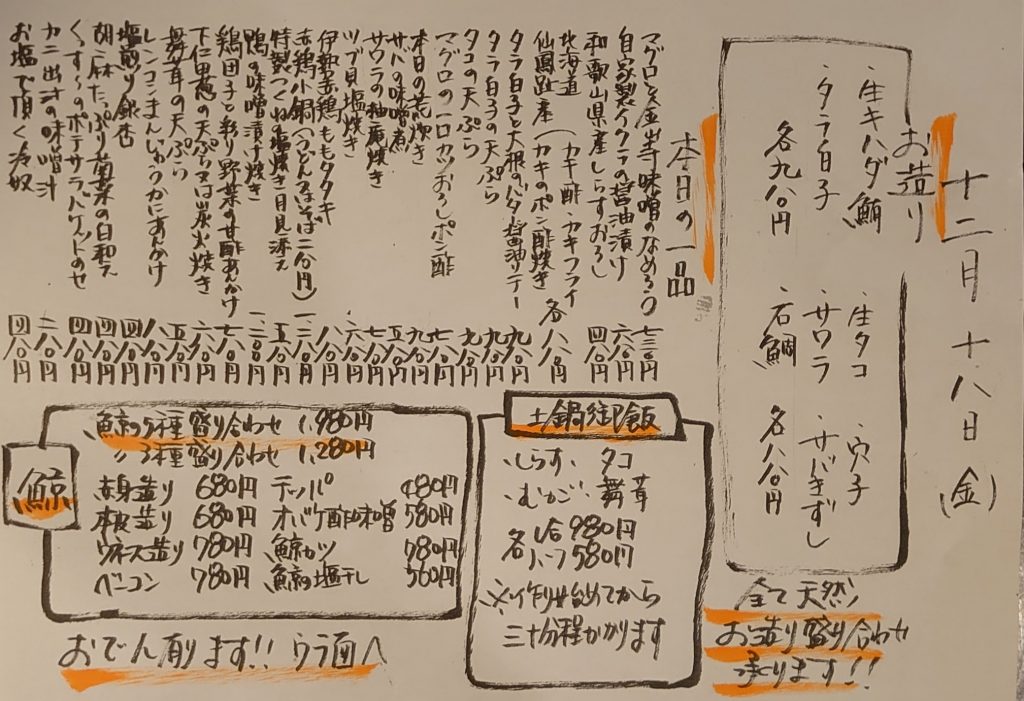 十二月十八日(金)
お造り
・生キハダ鮪
・タラ白子
各九八〇円
・生タコ
・サワラ
・石鯛
・穴子
・サッパきずし
各八八〇円
全て天然
お造り盛り合わせ
承ります!!
本日の一品
マグロと金山寺味噌のなめろう 七三〇円
自家製イクラの醤油漬け 六八〇円
和歌山県産しらすおろし 四八〇円
北海道
仙鳳趾産(カキ酢・カキフライ
カキのポン酢焼き 各八八〇円
タラ白子と大根のバター醤油ソテー 九八〇円
タラ白子の天ぷら 九八〇円
タコの天ぷら 九八〇円
マグロの一口カツおろしポン酢 七八〇円
本日の荒焼き 九八〇円
サバの味噌煮 五八〇円
サワラの柚庵焼き 七八〇円
ツブ貝塩焼き 六八〇円
伊勢赤鶏ももタタキ 八八〇円
赤鶏小鍋(うどん又はそば二八〇円) 一二八〇円
特製つくねの塩焼き月見添え 五八〇円
鴨の味噌漬け焼き 一二〇〇円
鶏団子と彩り野菜の甘酢あんかけ 七八〇円
下仁田葱の天ぷら又は炭火焼き 六八〇円
舞茸の天ぷら 五八〇円
レンコンまんじゅうかにあんかけ 八八〇円
塩煎り銀杏 四八〇円
胡麻たっぷり菊菜の白和え 四八〇円
くんせいのポテサラバゲットのせ 四八〇円
カニ出汁の味噌汁 二八〇円
お塩で頂く冷奴 四八〇円
土鍋御飯
・しらす・タコ
・むかご・舞茸
各1合980円
ハーフ580円
※作り始めてから
三十分程かかります
鯨
鯨の5種盛り合わせ 1,980円
〃3種盛り合わせ 1,280円
赤身造り 680円 テッパ 480円
本皮造り 680円 オバケ酢味噌 580円
ウネス造り 780円 鯨カツ 780円
ベーコン 780円 鯨の塩干し 560円
おでん有ります!! ウラ面へ